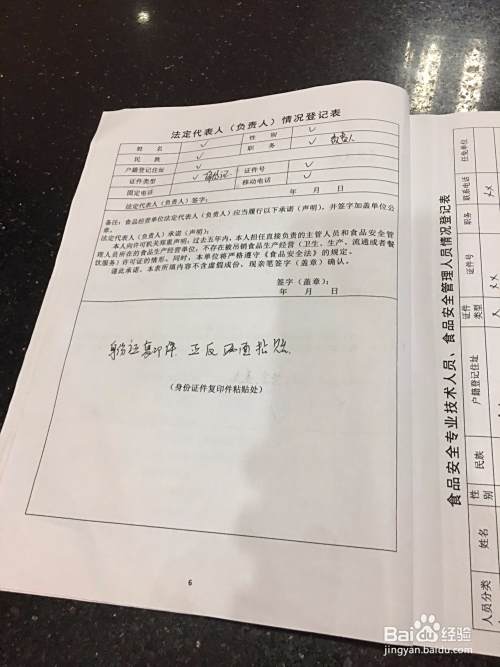 法定代表人（负责人）情况登记表
姓名 ✓ 性别 ✓
民族 ✓ 职务 ✓ 负责人
户籍登记住址 ✓
证件类型 ✓ 身份证 证件号 ✓
固定电话 移动电话 ✓
法定代表人（负责人）签字： 年 月 日
备注：食品经营单位法定代表人（负责人）应当履行以下承诺（声明），并签字加盖单位公
章。
法定代表人（负责人）承诺（声明）：
本人向许可机关郑重声明：过去五年内，本人担任直接负责的主管人员和食品安全管
理人员所在的食品生产经营单位，不存在被吊销食品生产经营（卫生、生产、流通或者餐
饮服务）许可证的情形。同时，本单位将严格遵守《食品安全法》的规定。
谨此承诺，本表所填内容不含虚假成份，现亲笔签字（盖章）确认。
签字（盖章）：
年 月 日
身份证复印件 正反两面粘贴
（身份证件复印件粘贴处）
6
食品安全专业技术人员、食品安全管理人员情况登记表
人员分类 姓名 性别 民族 户籍登记住址 证件类型 证件号 职务 联系电话 任免单位
Baidu经验
jingyan.baidu.com